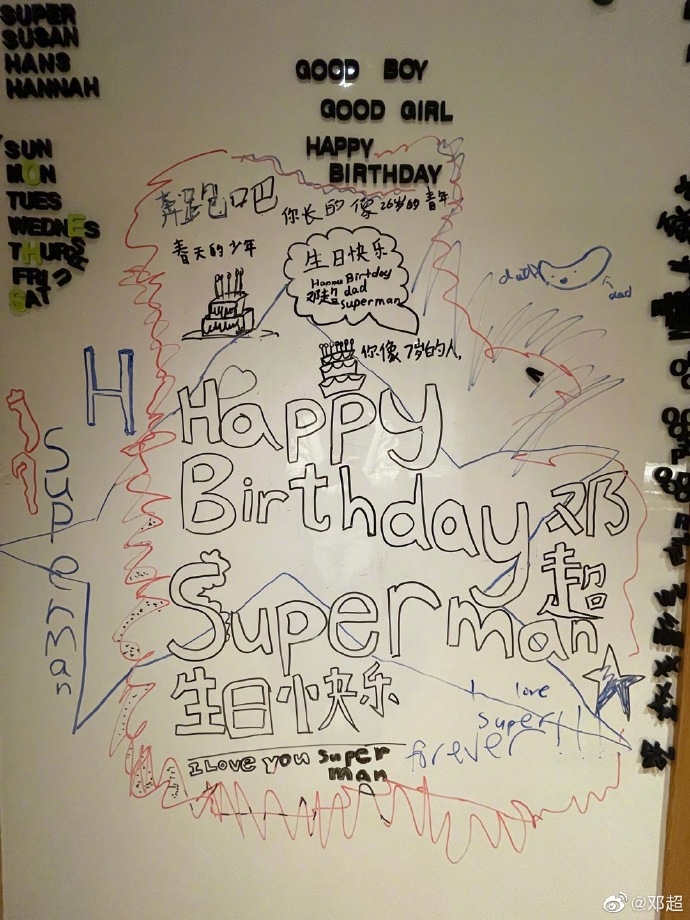 SUPER
SUSAN
HANS
HANNAH
GOOD BOY
GOOD GIRL
HAPPY
BIRTHDAY
SUN
MON
TUES
WEDNES
THURS
FRI
SAT
奔跑吧
你长的像26岁的青年
春天的少年
生日快乐
Birtday
邓超 dad
superman
dad
你像7岁的人
H
Superman
Happy
Birthday 邓
超
Superman
生日快乐
I love
super!!!!
forever
I Love you Super
man
@邓超